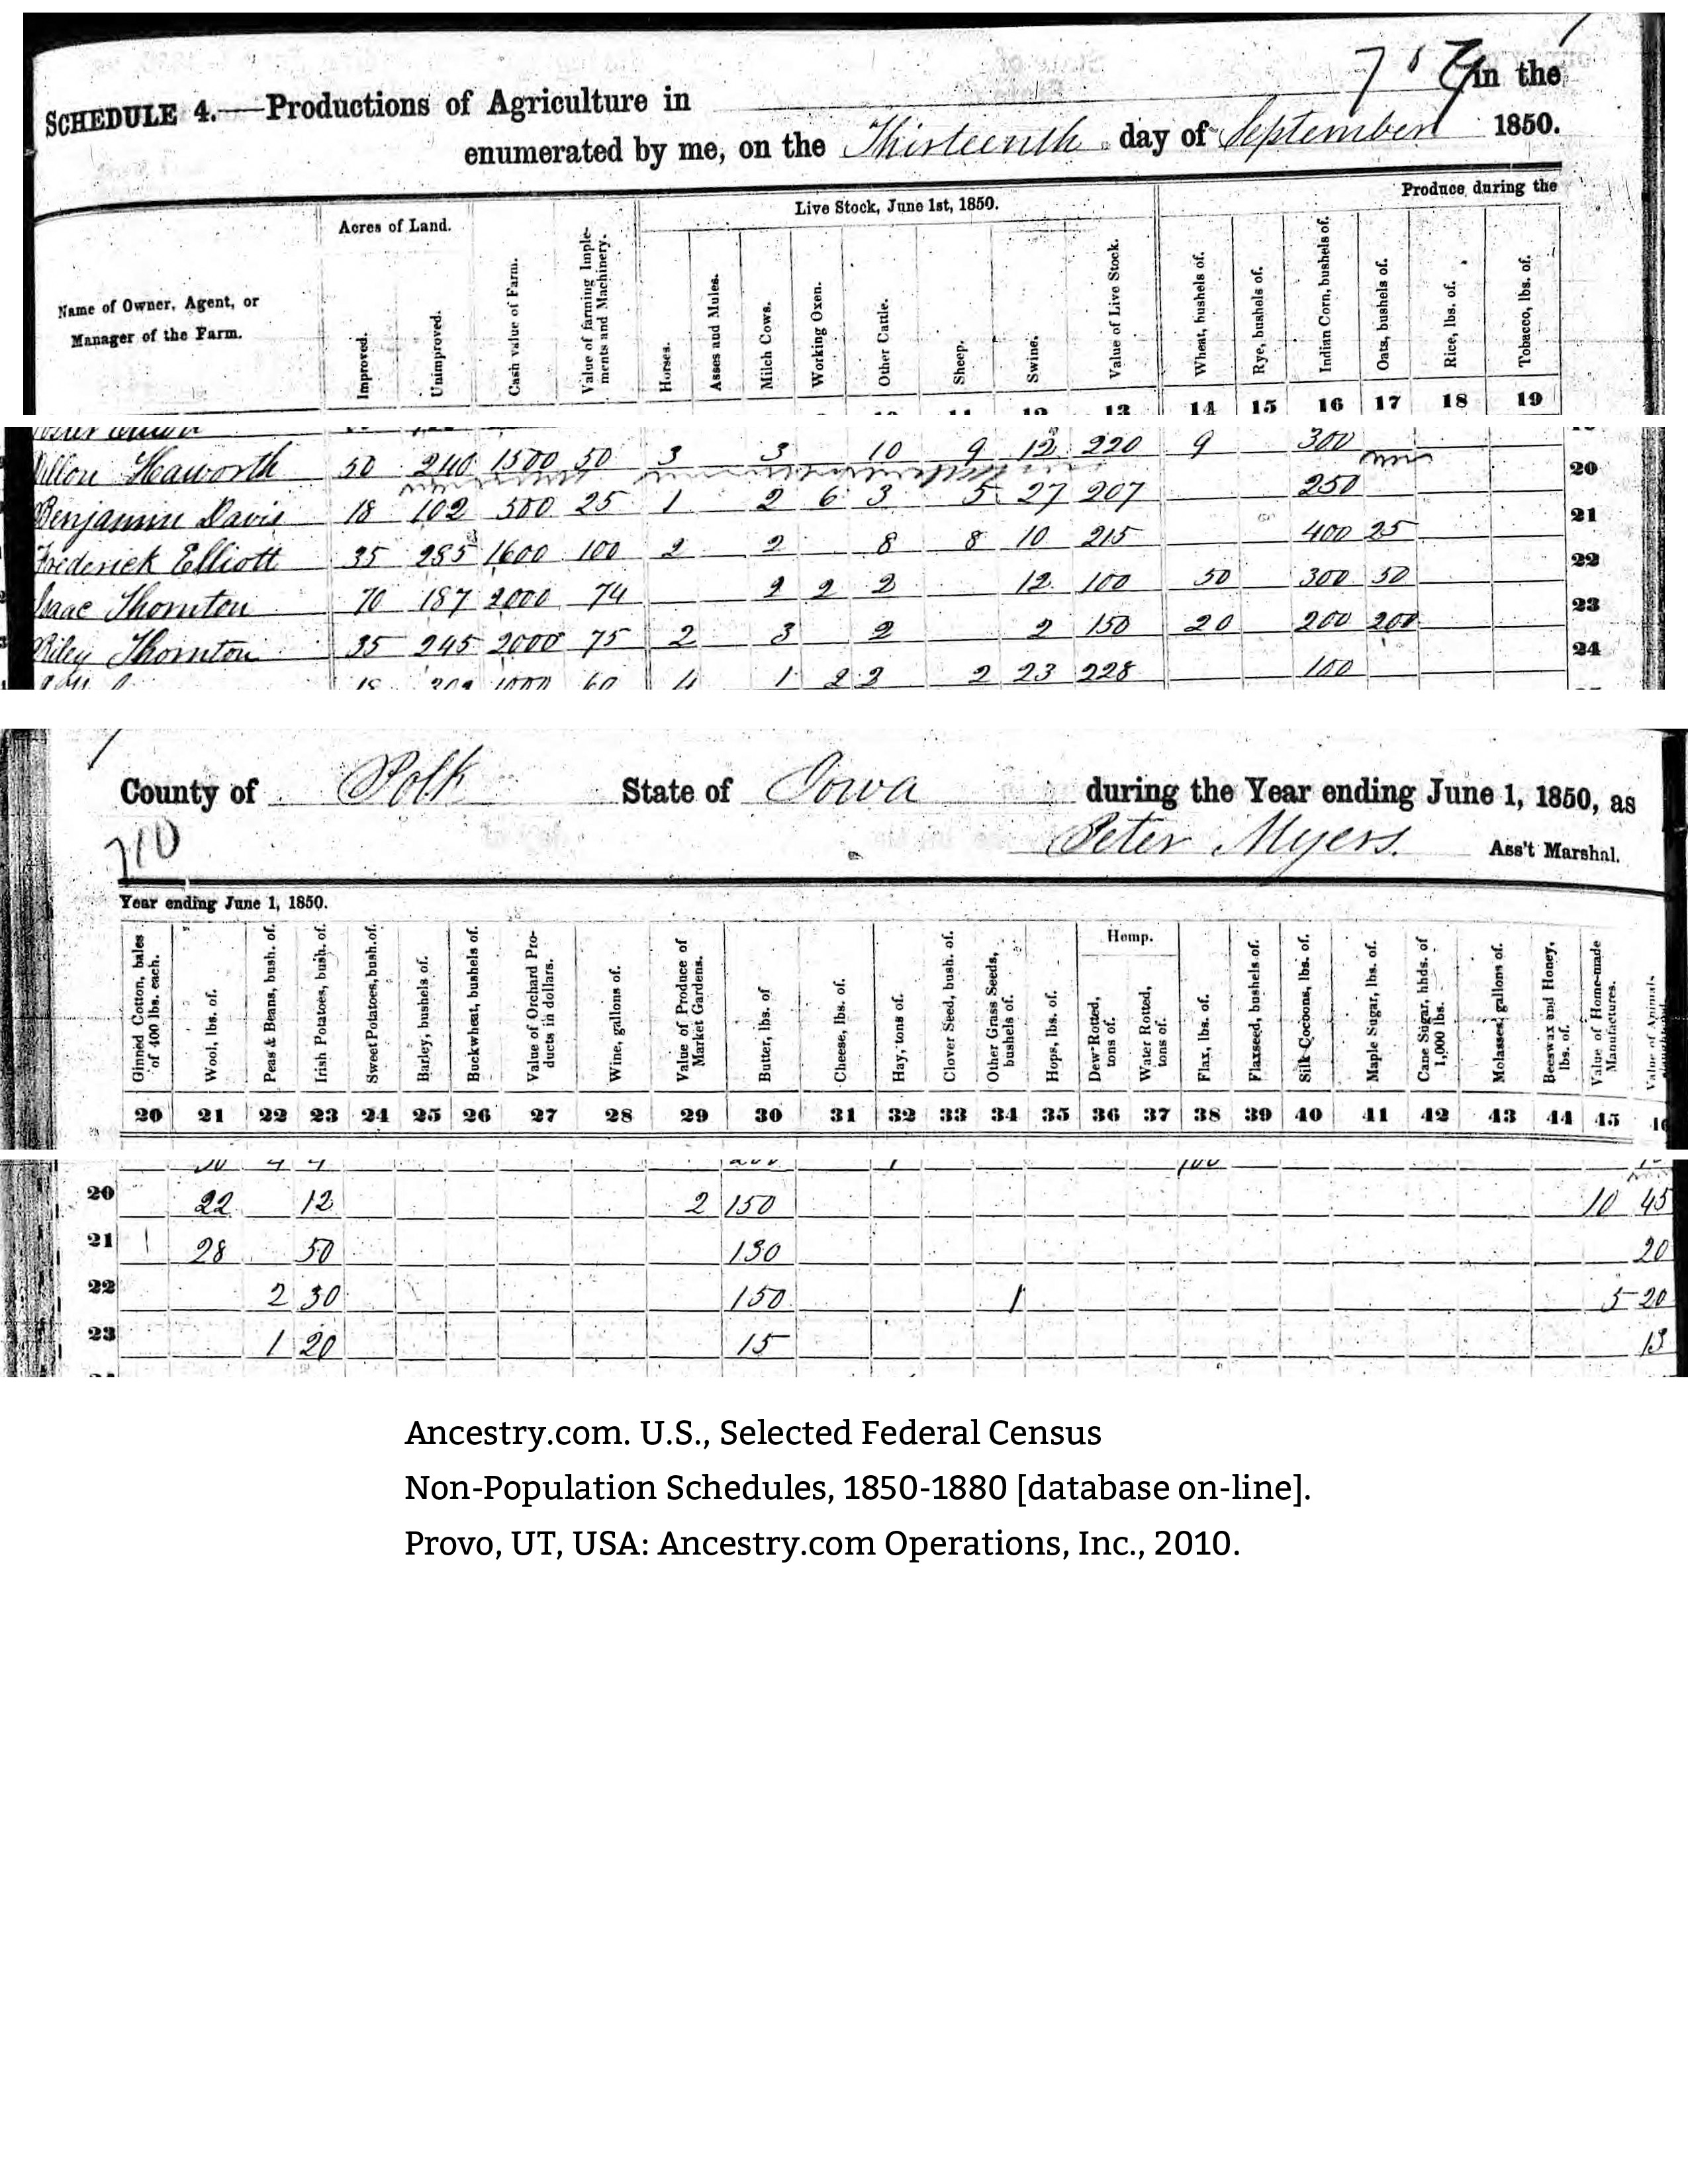 7 7
SCHEDULE 4.—Productions of Agriculture in in the
enumerated by me, on the Thirteenth day of September 1850.
Produce during the
Live Stock, June 1st, 1850.
Acres of Land.
Name of Owner, Agent, or
Manager of the Farm.
Improved.
Unimproved.
Cash value of Farm.
Value of farming Imple-
ments and Machinery.
Horses.
Asses and Mules.
Milch Cows.
Working Oxen.
Other Cattle.
Sheep.
Swine.
Value of Live Stock.
Wheat, bushels of.
Rye, bushels of.
Indian Corn, bushels of.
Oats, bushels of.
Rice, lbs. of.
Tobacco, lbs. of.
10 11 12 13 14 15 16 17 18 19
Dillon Haworth 50 240 1500 50 3 3 10 9 12 220 9 300
20
Benjamin Davis 18 102 500 25 1 2 6 3 5 27 207 250
21
Frederick Elliott 35 285 1600 100 2 2 8 8 10 215 400 25
22
Isaac Thornton 70 187 2000 74 2 2 2 12 100 50 300 50
23
Riley Thornton 35 245 2000 75 2 3 2 2 150 20 200 200
24
18 202 1000 60 4 1 2 2 2 23 228 100
County of Polk State of Iowa during the Year ending June 1, 1850, as
710 Peter Myers. Ass't Marshal.
Year ending June 1, 1850.
Ginned Cotton, bales
of 400 lbs. each.
Wool, lbs. of.
Peas & Beans, bush. of.
Irish Potatoes, bush. of.
Sweet Potatoes, bush. of.
Barley, bushels of.
Buckwheat, bushels of.
Value of Orchard Pro-
ducts in dollars.
Wine, gallons of.
Value of Produce of
Market Gardens.
Butter, lbs. of
Cheese, lbs. of.
Hay, tons of.
Clover Seed, bush. of.
Other Grass Seeds,
bushels of.
Hops, lbs. of.
Hemp.
Dew-Rotted,
tons of.
Water Rotted,
tons of.
Flax, lbs. of.
Flaxseed, bushels of.
Silk Cocoons, lbs. of.
Maple Sugar, lbs. of.
Cane Sugar, hhds. of
1,000 lbs.
Molasses, gallons of.
Beeswax and Honey,
lbs. of.
Value of Home-made
Manufactures.
Value of Animals
20 21 22 23 24 25 26 27 28 29 30 31 32 33 34 35 36 37 38 39 40 41 42 43 44 45
20 22 12 2 150 10 45
21 28 50 130 20
22 2 30 150 1 5 20
23 1 20 15 13
Ancestry.com. U.S., Selected Federal Census
Non-Population Schedules, 1850-1880 [database on-line].
Provo, UT, USA: Ancestry.com Operations, Inc., 2010.